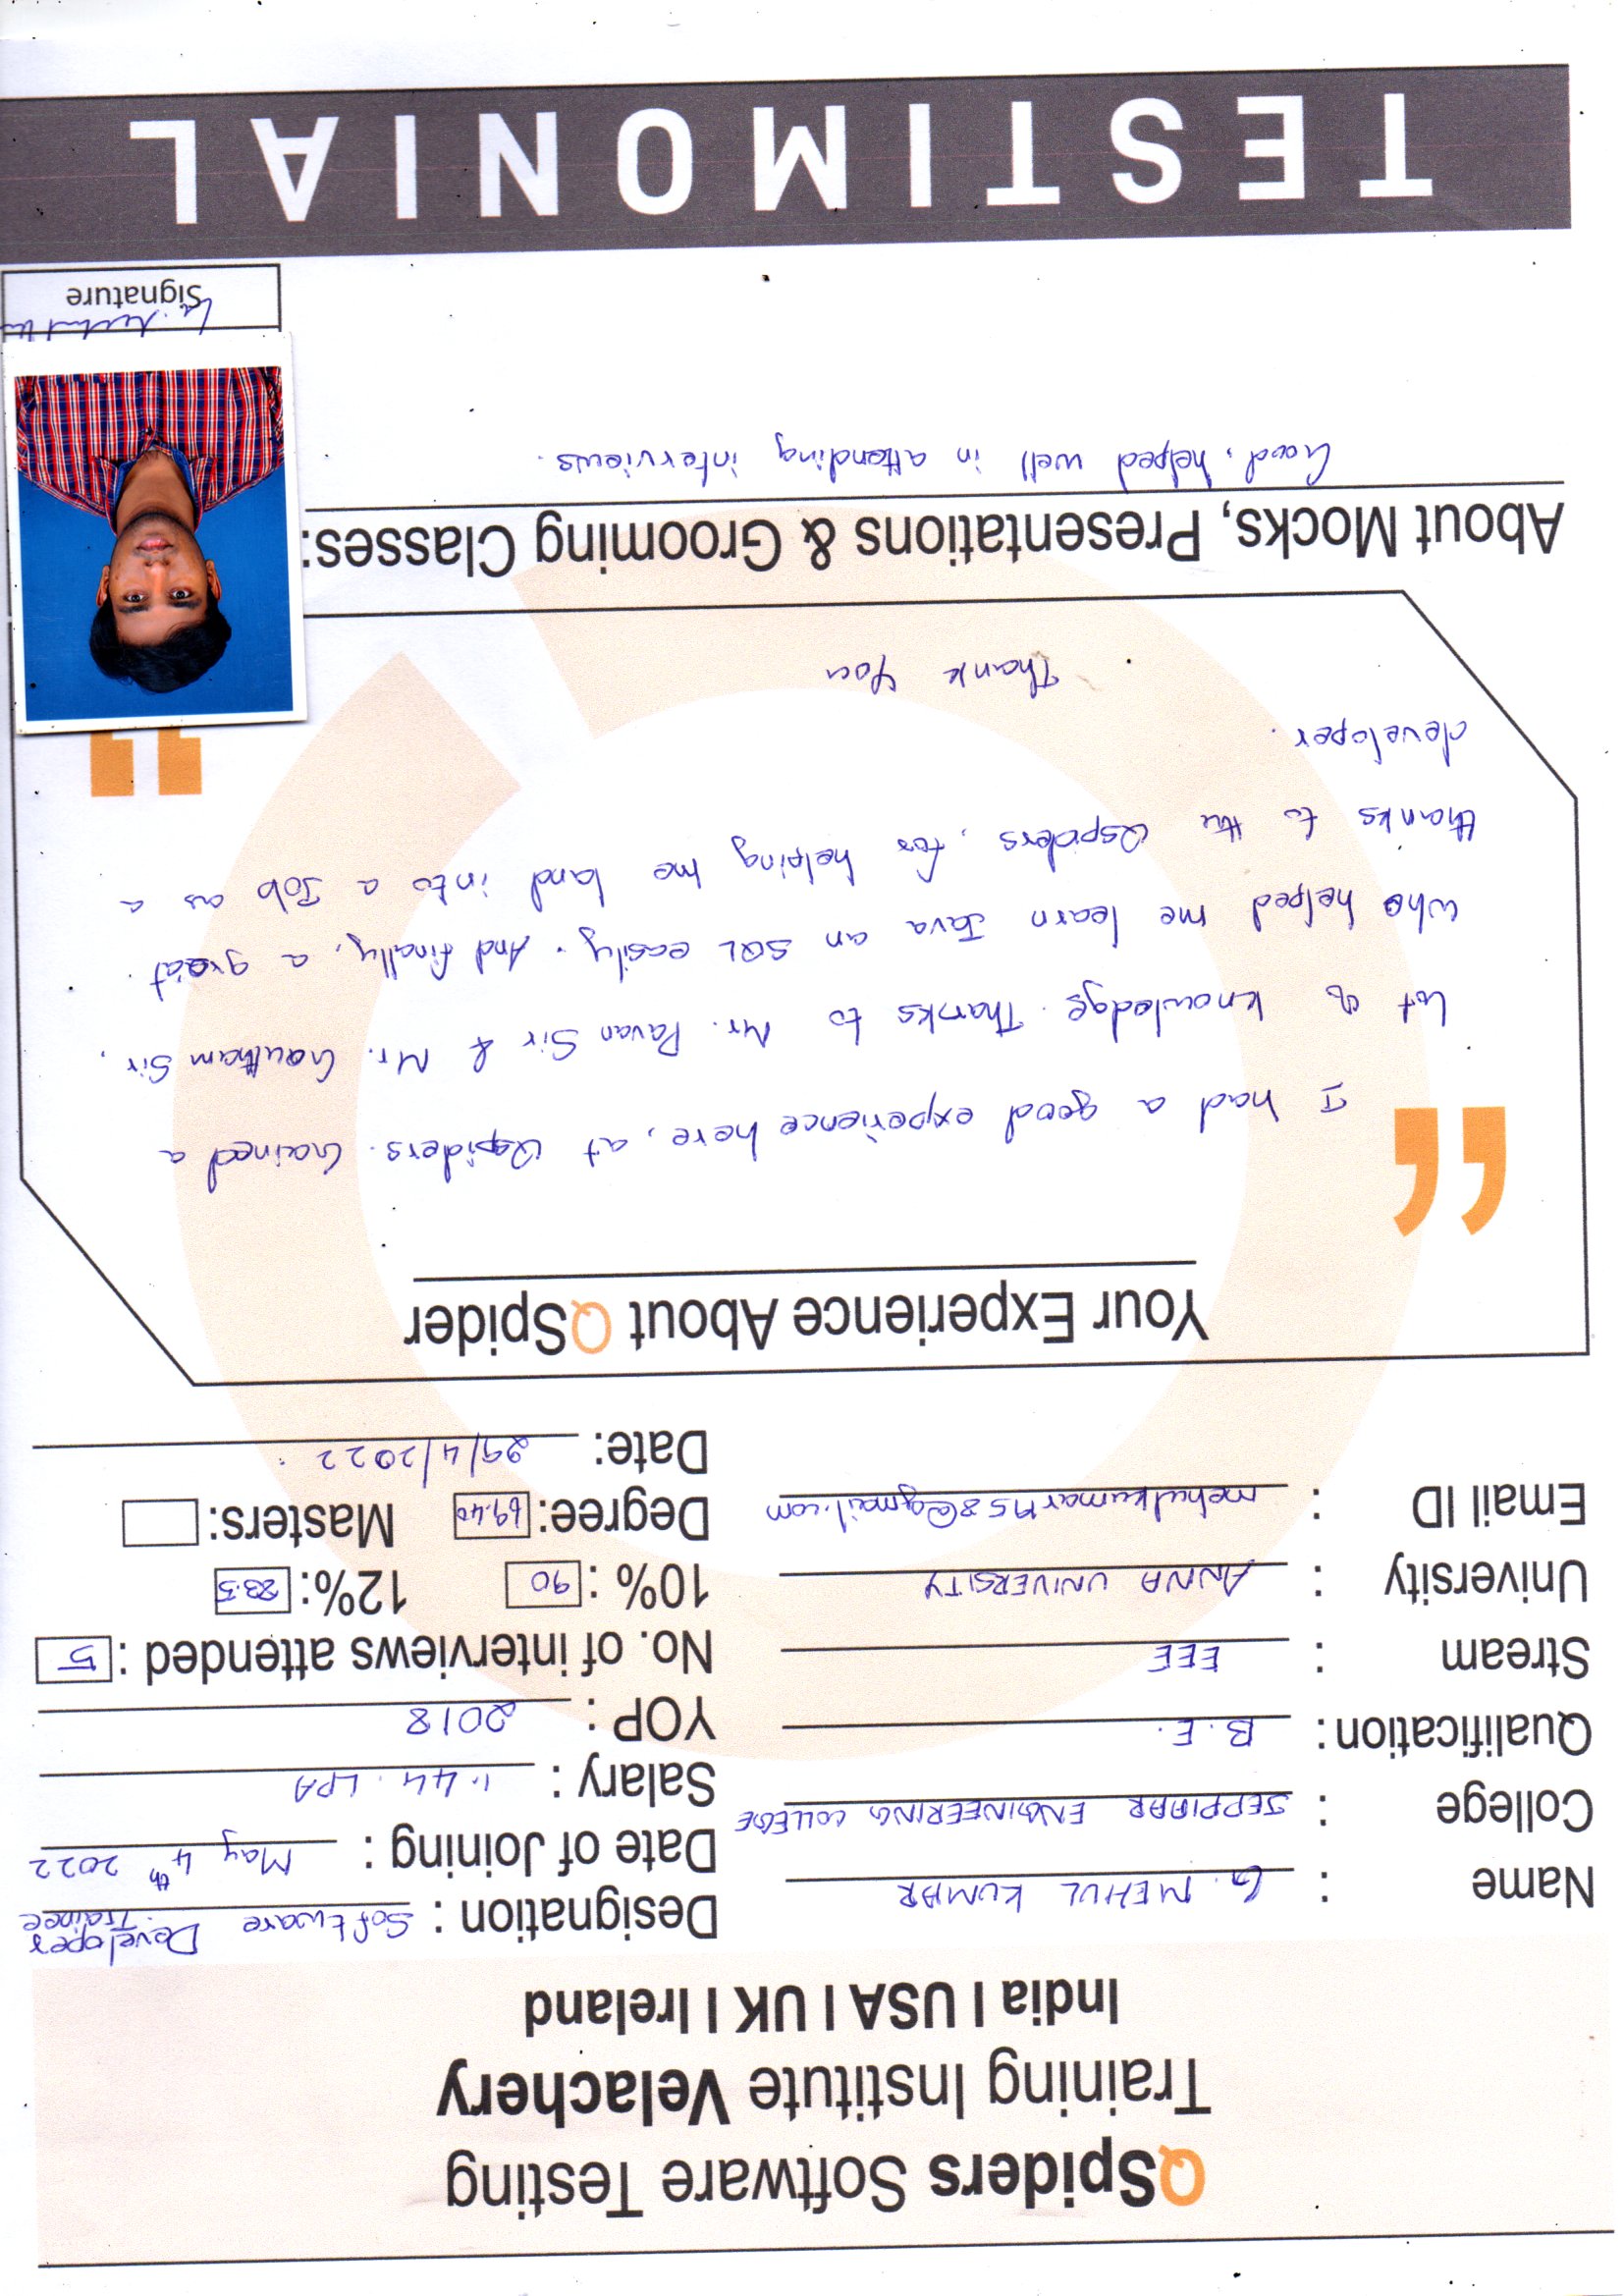 QSpiders Software Testing
Training Institute Velachery
India | USA | UK | Ireland
Name : G. MEHUL KUMAR
Designation : Software Developer Trainee
College : JEPPIAAR ENGINEERING COLLEGE
Date of Joining : May 4th 2022
Qualification : B.E.
Salary : 1.44 LPA
Stream : EEE
YOP : 2018
No. of interviews attended : 5
University : ANNA UNIVERSITY
10% : 90 12%: 83.5
Email ID :
Degree: 69.40 Masters:
Date: 29/4/2022
Your Experience About QSpider
“
I had a good experience here, at Qspiders. Gained a
lot of knowledge. Thanks to Mr. Pavan Sir & Mr. Gautham Sir,
who helped me learn Java an SQL easily. And finally, a great
thanks to the Qspiders, for helping me land into a Job as a
developer.
Thank You
About Mocks, Presentations & Grooming Classes:
Good, helped well in attending interviews.
Signature
TESTIMONIAL